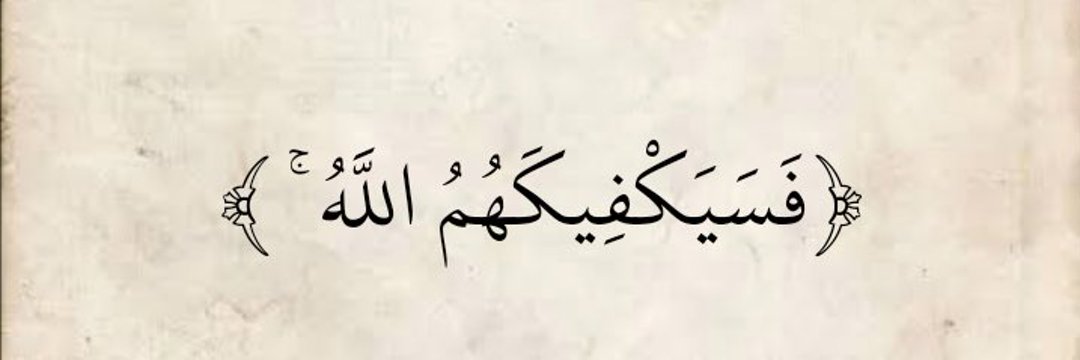 ﴿فَسَيَكْفِيكَهُمُ اللَّهُ ۚ﴾